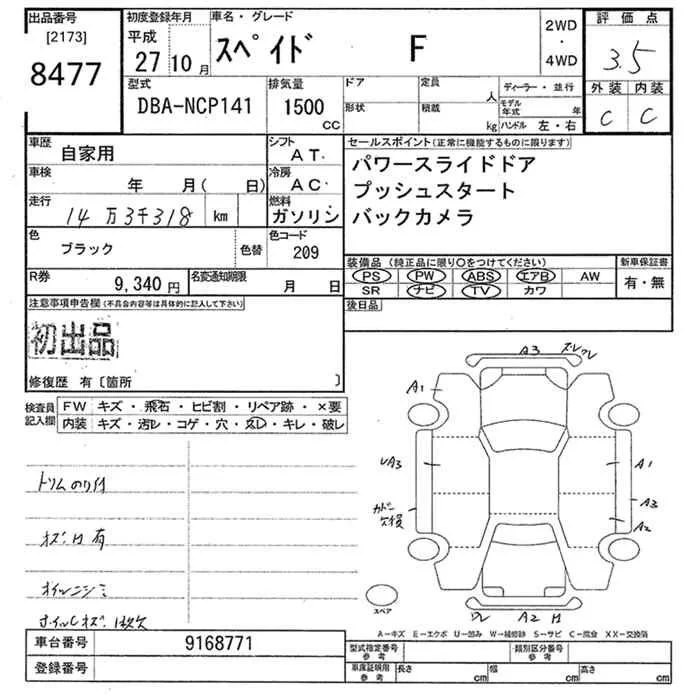 出品番号 初度登録年月 車名・グレード 2WD・4WD 評価点
[2173] 平成 スペイド F 3.5
8477 27 10月 外装 内装
型式 排気量 ドア 定員 人 ディーラー・並行 C C
DBA-NCP141 1500 cc 形状 積載 kg モデル年式 年 ハンドル 左・右
車歴 自家用 シフト AT. セールスポイント(正常に機能するものに限ります)
車検 年 月( 日) 冷房 AC. パワースライドドア
走行 14万3千318 km 燃料 ガソリン プッシュスタート
バックカメラ
色 ブラック 色替 色コード 209
装備品(純正品に限り○をつけてください) 新車保証書
R券 9,340円 名変通知期限 月 日 PS PW ABS エアB AW 有・無
SR ナビ TV カワ
注意事項申告欄(不具合内容等は具体的に記入して下さい) 後日品
初出品
修復歴 有〔箇所 〕
検査員記入欄 FW キズ・飛石・ヒビ割・リペア跡・×要
内装 キズ・汚レ・コゲ・穴・スレ・キレ・破レ
A3 ズレワレ
A1
UA3 A1
カバー欠損 A3
A2
トリムのり付
オズH有
オイルニジミ
スペア ワレ A2 H
A-キズ E-エクボ U-凹み W-補修跡 S-サビ C-腐食 XX-交換済
車台番号 9168771 型式指定番号 参考 類別区分番号 参考
登録番号 車庫証明用 参考 長さ cm 幅 cm 高さ cm